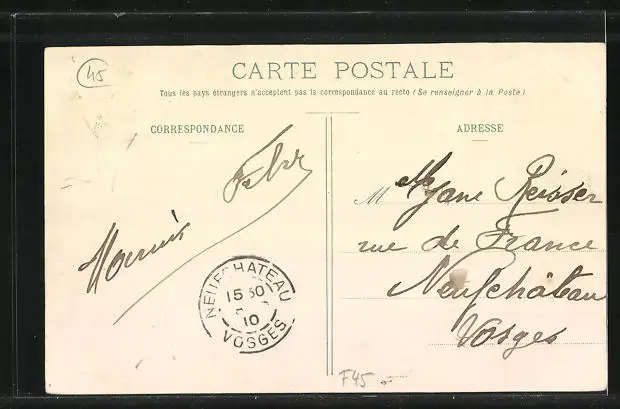 45
CARTE POSTALE
Tous les pays étrangers n'acceptent pas la correspondance au recto (Se renseigner à la Poste)
CORRESPONDANCE
ADRESSE
Mlle Jane Reisser
rue de France
Neufchâteau
Vosges
NEUFCHATEAU
15 30
10
VOSGES
F45